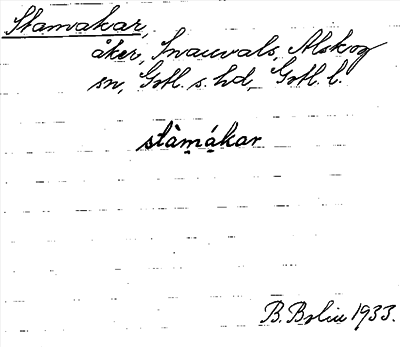 Stamakar,
åker, Smauvals, Alskog
sn, Gotl. s. hd, Gotl. l.
stàmákar
B. Bolin 1933.